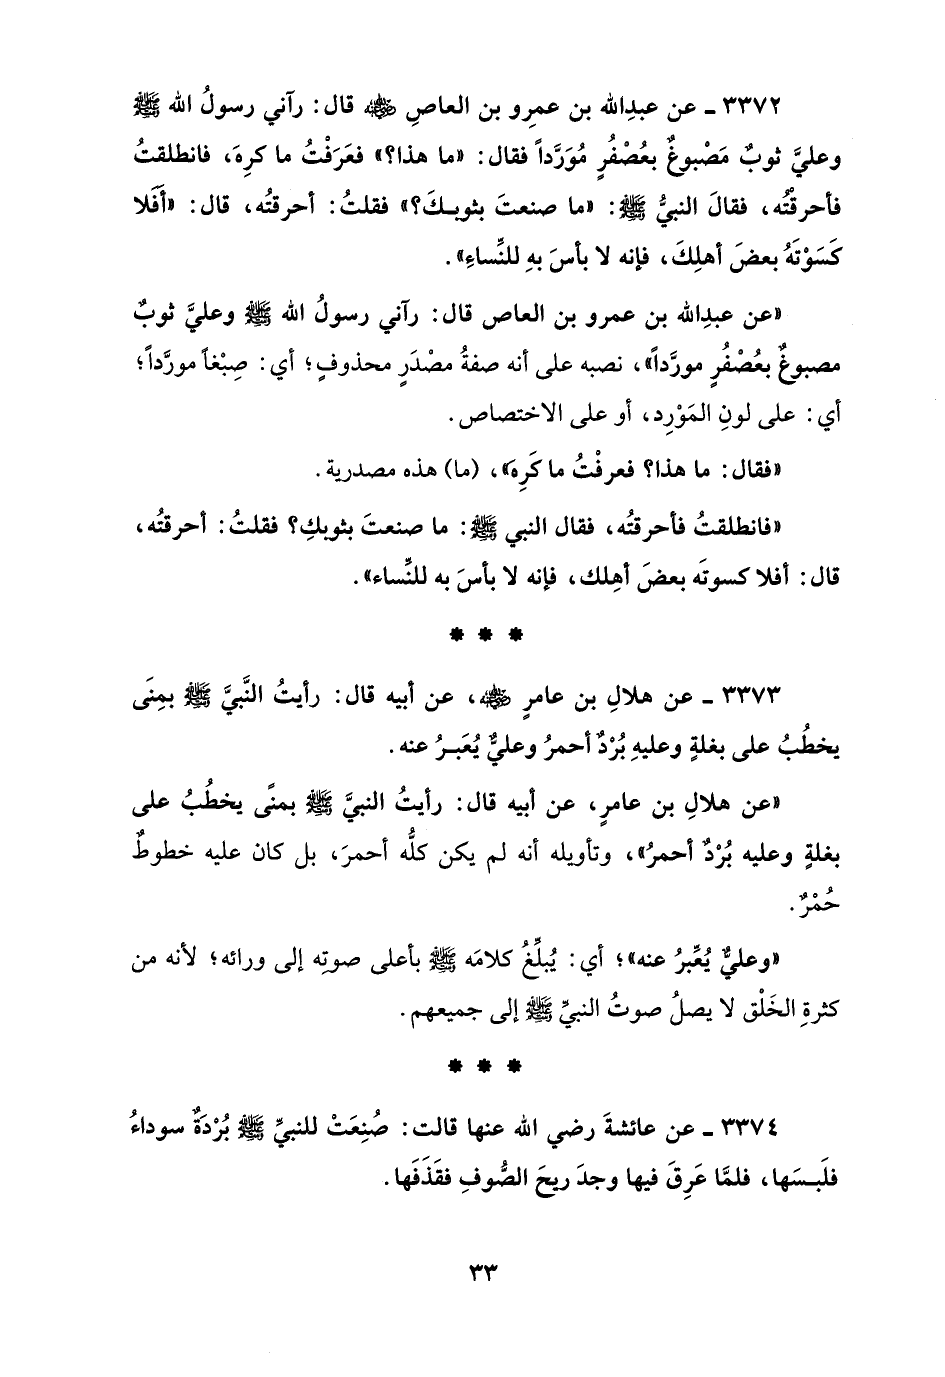 ٣٣٧٢ ـ عن عبدِالله بن عمرِو بن العاصِ ﵁ قال: رآني رسولُ الله ﷺ
وعليَّ ثوبٌ مَصْبوغٌ بعُصْفُرٍ مُوَرَّداً فقال: «ما هذا؟» فعَرَفْتُ ما كرِهَ، فانطلقتُ
فأحرقْتُه، فقالَ النبيُّ ﷺ: «ما صنعتَ بثوبِكَ؟» فقلتُ: أحرقتُه، قال: «أَفَلا
كَسَوْتَهُ بعضَ أهلِكَ، فإنه لا بأسَ بهِ للنِّساءِ».
«عن عبدِالله بن عمرو بن العاص قال: رآني رسولُ الله ﷺ وعليَّ ثوبٌ
مصبوغٌ بعُصْفُرٍ مورَّداً»، نصبه على أنه صفةُ مصْدَرٍ محذوفٍ؛ أي: صِبْغاً مورَّداً؛
أي: على لونِ المَوْرِد، أو على الاختصاص.
«فقال: ما هذا؟ فعرفْتُ ما كَرِهَ»، (ما) هذه مصدرية.
«فانطلقتُ فأحرقتُه، فقال النبي ﷺ: ما صنعتَ بثوبكِ؟ فقلتُ: أحرقتُه،
قال: أفلا كسوتَه بعضَ أهلِك، فإنه لا بأسَ به للنِّساء».
* * *
٣٣٧٣ ـ عن هلالِ بن عامرٍ ﵁، عن أبيه قال: رأيتُ النَّبيَّ ﷺ بمِنَى
يخطُبُ على بغلةٍ وعليهِ بُرْدٌ أحمرُ وعليٌّ يُعَبـرُ عنه.
«عن هلالِ بن عامرٍ، عن أبيه قال: رأيتُ النبيَّ ﷺ بمنًى يخطُبُ على
بغلةٍ وعليه بُرْدٌ أحمرُ»، وتأويله أنه لم يكن كلُّه أحمرَ، بل كان عليه خطوطٌ
حُمْرٌ.
«وعليٌّ يُعَّبرُ عنه»؛ أي: يُبلِّغُ كلامَه ﷺ بأعلى صوتِه إلى ورائه؛ لأنه من
كثرةِ الخَلْق لا يصلُ صوتُ النبيِّ ﷺ إلى جميعهم.
* * *
٣٣٧٤ ـ عن عائشةَ رضي الله عنها قالت: صُنِعَتْ للنبيِّ ﷺ بُرْدَةٌ سوداءُ
فلَبِسَها، فلمَّا عَرِقَ فيها وجدَ ريحَ الصُّوفِ فقَذَفَها.
٣٣